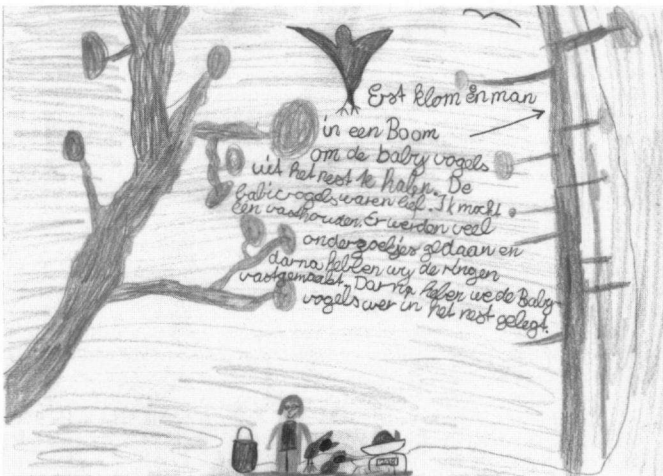 Erst klom één man
in een Boom
om de baby vogels
uit het nest te halen. De
babievogels waren lief. Ik mocht
één vasthouden. Er werden veel
onderzoekjes gedaan en
darna hebben wij de ringen
vastgemaakt. Darna heben we de Baby-
vogels wer in het nest gelegt.